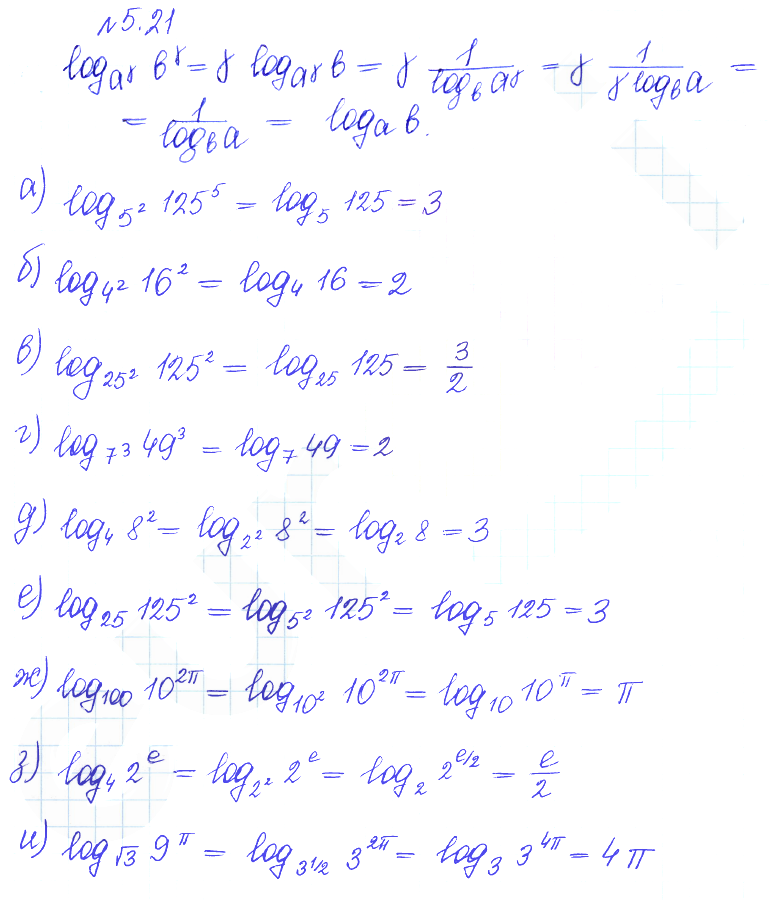 №5.21
log_{a^γ} b^γ = γ log_{a^γ} b = γ \frac{1}{log_b a^γ} = γ \frac{1}{γ log_b a} =
= \frac{1}{log_b a} = log_a b.
а) log_{5^2} 125^5 = log_5 125 = 3
б) log_{4^2} 16^2 = log_4 16 = 2
в) log_{25^2} 125^2 = log_{25} 125 = \frac{3}{2}
г) log_{7^3} 49^3 = log_7 49 = 2
д) log_4 8^2 = log_{2^2} 8^2 = log_2 8 = 3
е) log_{25} 125^2 = log_{5^2} 125^2 = log_5 125 = 3
ж) log_{100} 10^{2π} = log_{10^2} 10^{2π} = log_{10} 10^π = π
з) log_4 2^e = log_{2^2} 2^e = log_2 2^{e/2} = \frac{e}{2}
и) log_{√3} 9^π = log_{3^{1/2}} 3^{2π} = log_3 3^{4π} = 4π